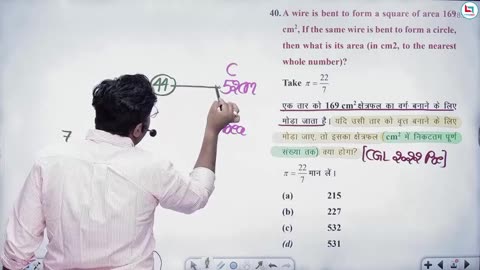 40. A wire is bent to form a square of area 169
cm², If the same wire is bent to form a circle,
then what is its area (in cm2, to the nearest
whole number)?
Take π = 22/7
एक तार को 169 cm² क्षेत्रफल का वर्ग बनाने के लिए
मोड़ा जाता है। यदि उसी तार को वृत्त बनाने के लिए
मोड़ा जाए, तो इसका क्षेत्रफल (cm² में निकटतम पूर्ण
संख्या तक) क्या होगा?
[CGL 2022 Pre]
π = 22/7 मान लें।
(a) 215
(b) 227
(c) 532
(d) 531
C
44
52cm
7